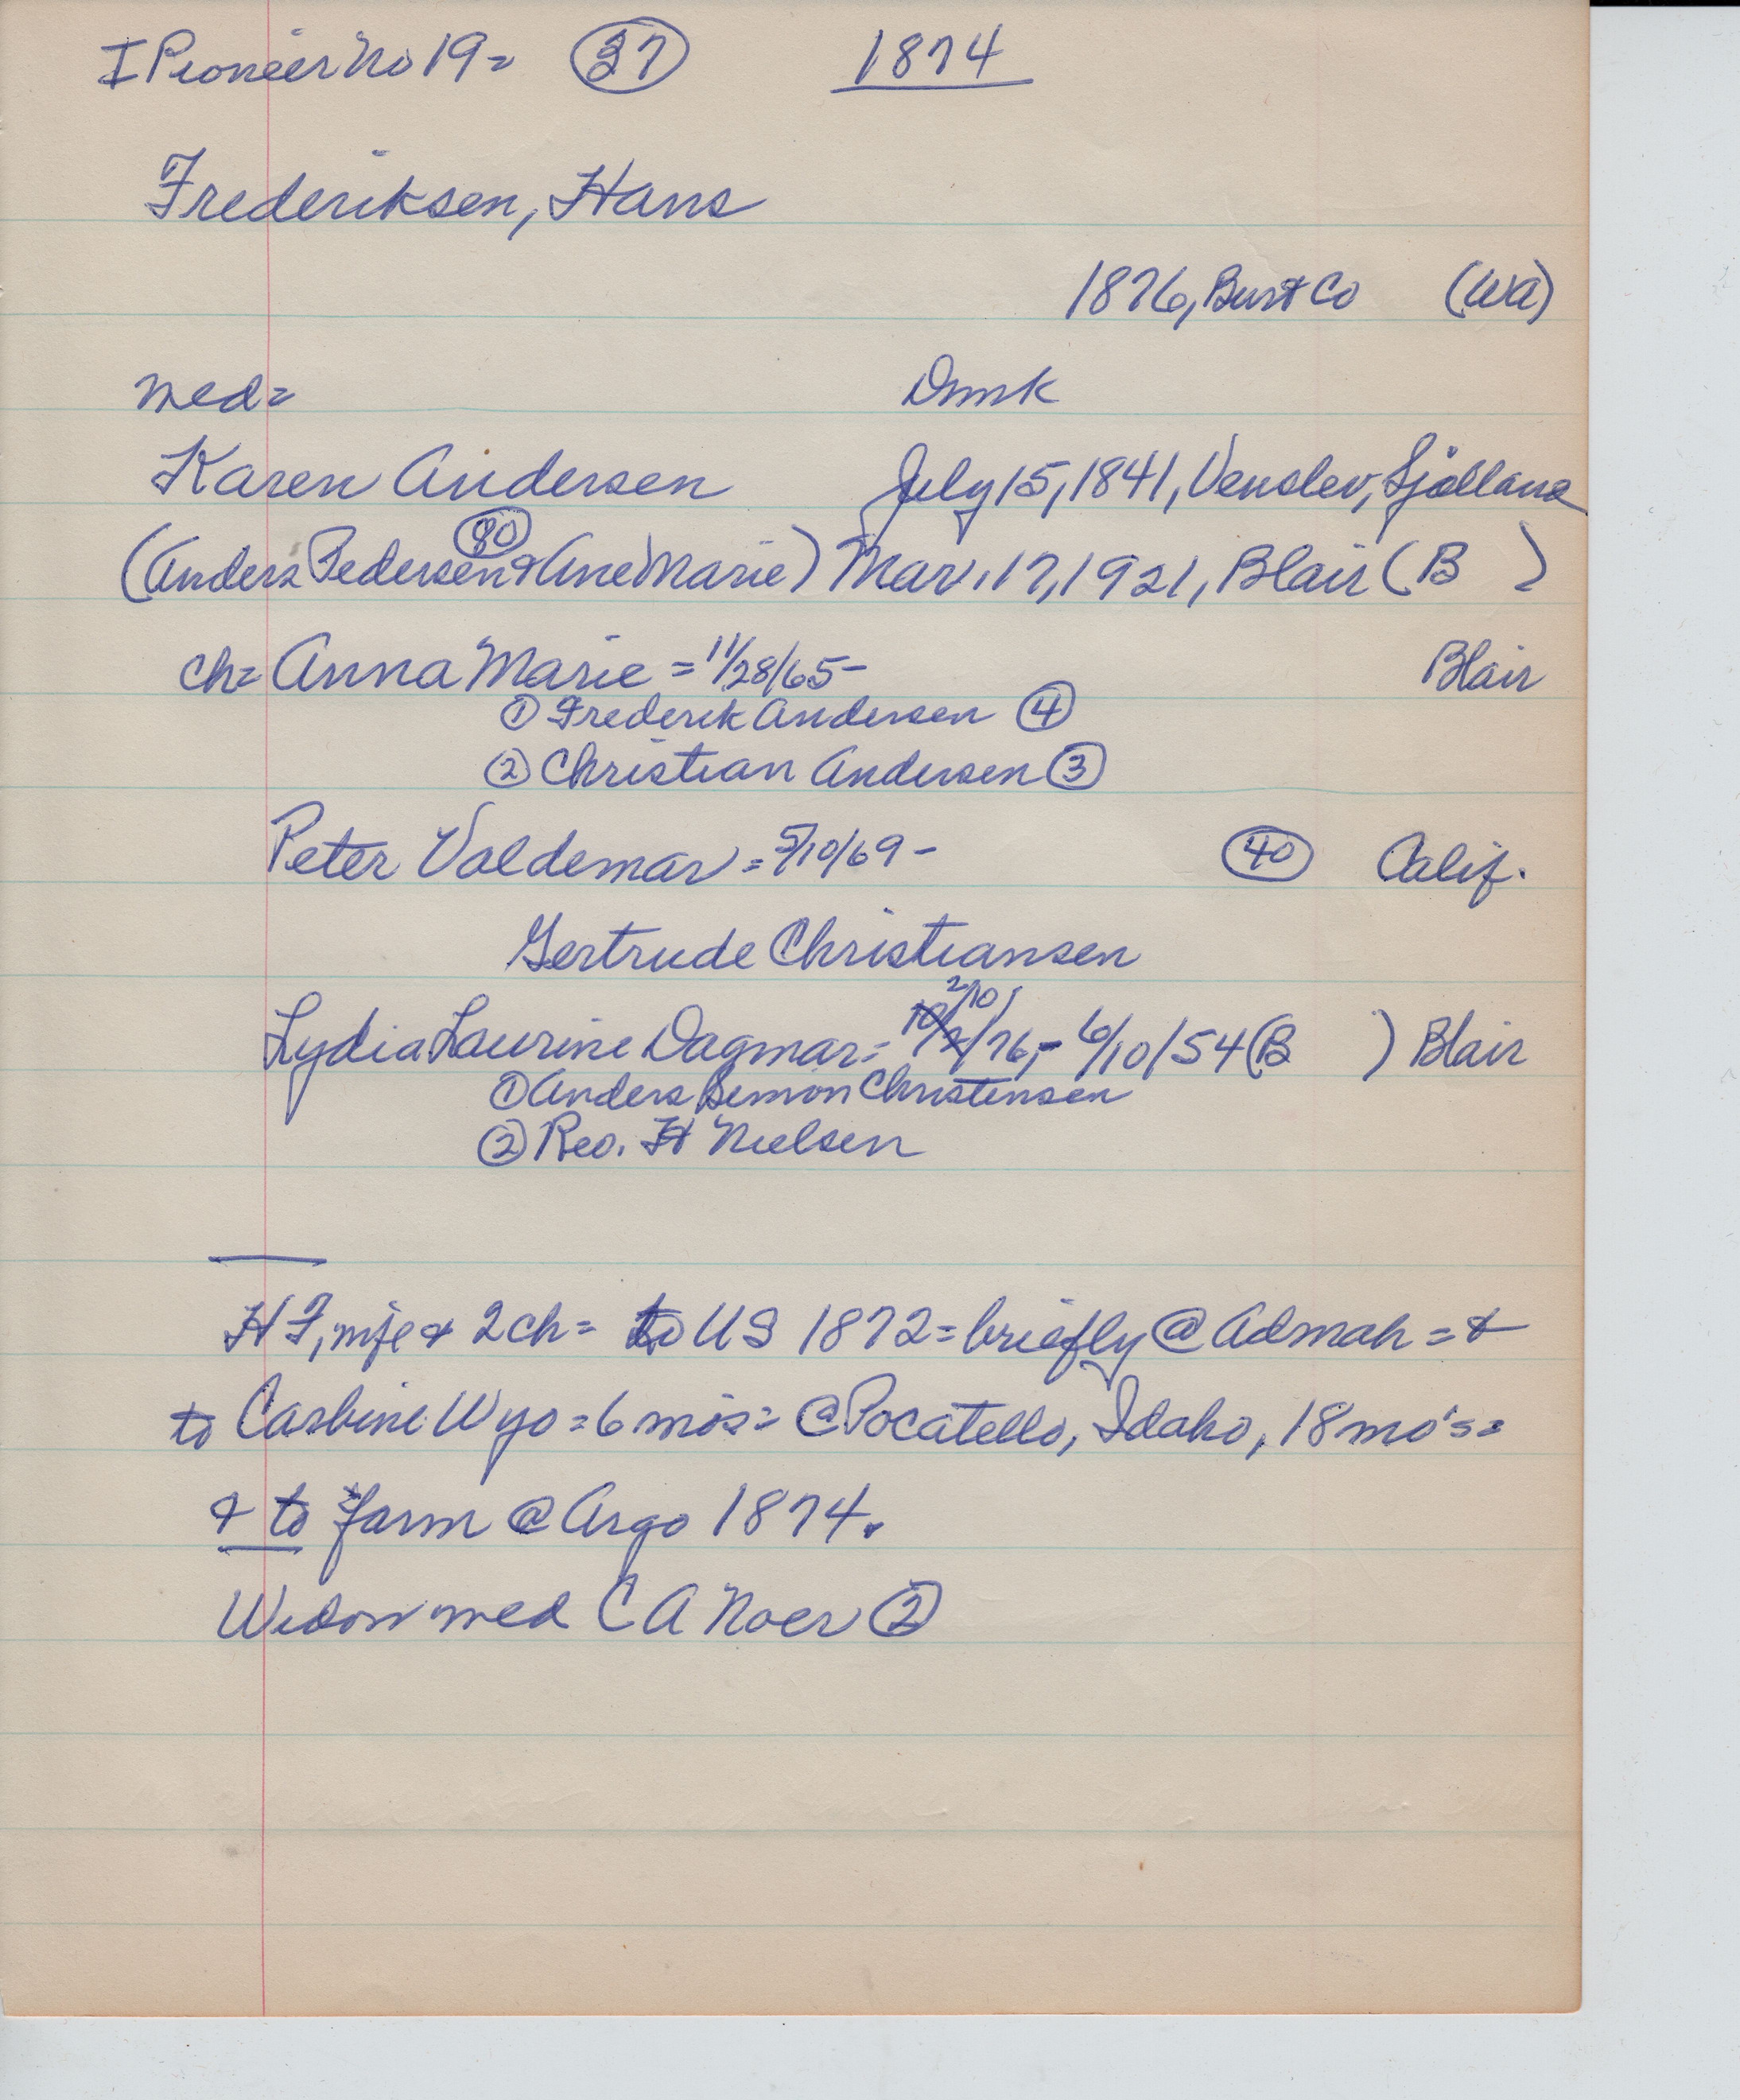 I Pioneer No 19= 37 1874
Frederiksen, Hans
1876, Burt Co (Wa)
med= Dmk
Karen Andersen July 15, 1841, Venslev, Sjælland
(Anders Pedersen 80 & Ane Marie) Mar. 17, 1921, Blair (B )
ch= Anna Marie = 11/28/65- Blair
① Frederik Andersen ④
② Christian Andersen ③
Peter Valdemar = 5/10/69 - 40 Calif.
Gertrude Christiansen
2/10/
Lydia Laurine Dagmar= 10/2/76,- 6/10/54 (B ) Blair
① Anders Simon Christensen
② Rev. H Nielsen
H F, wife & 2 ch = to US 1872 = briefly @ Admah = &
to Carbine Wyo = 6 mos = @ Pocatello, Idaho, 18 mo's =
& to farm @ Argo 1874.
Widow med C A Noer ②